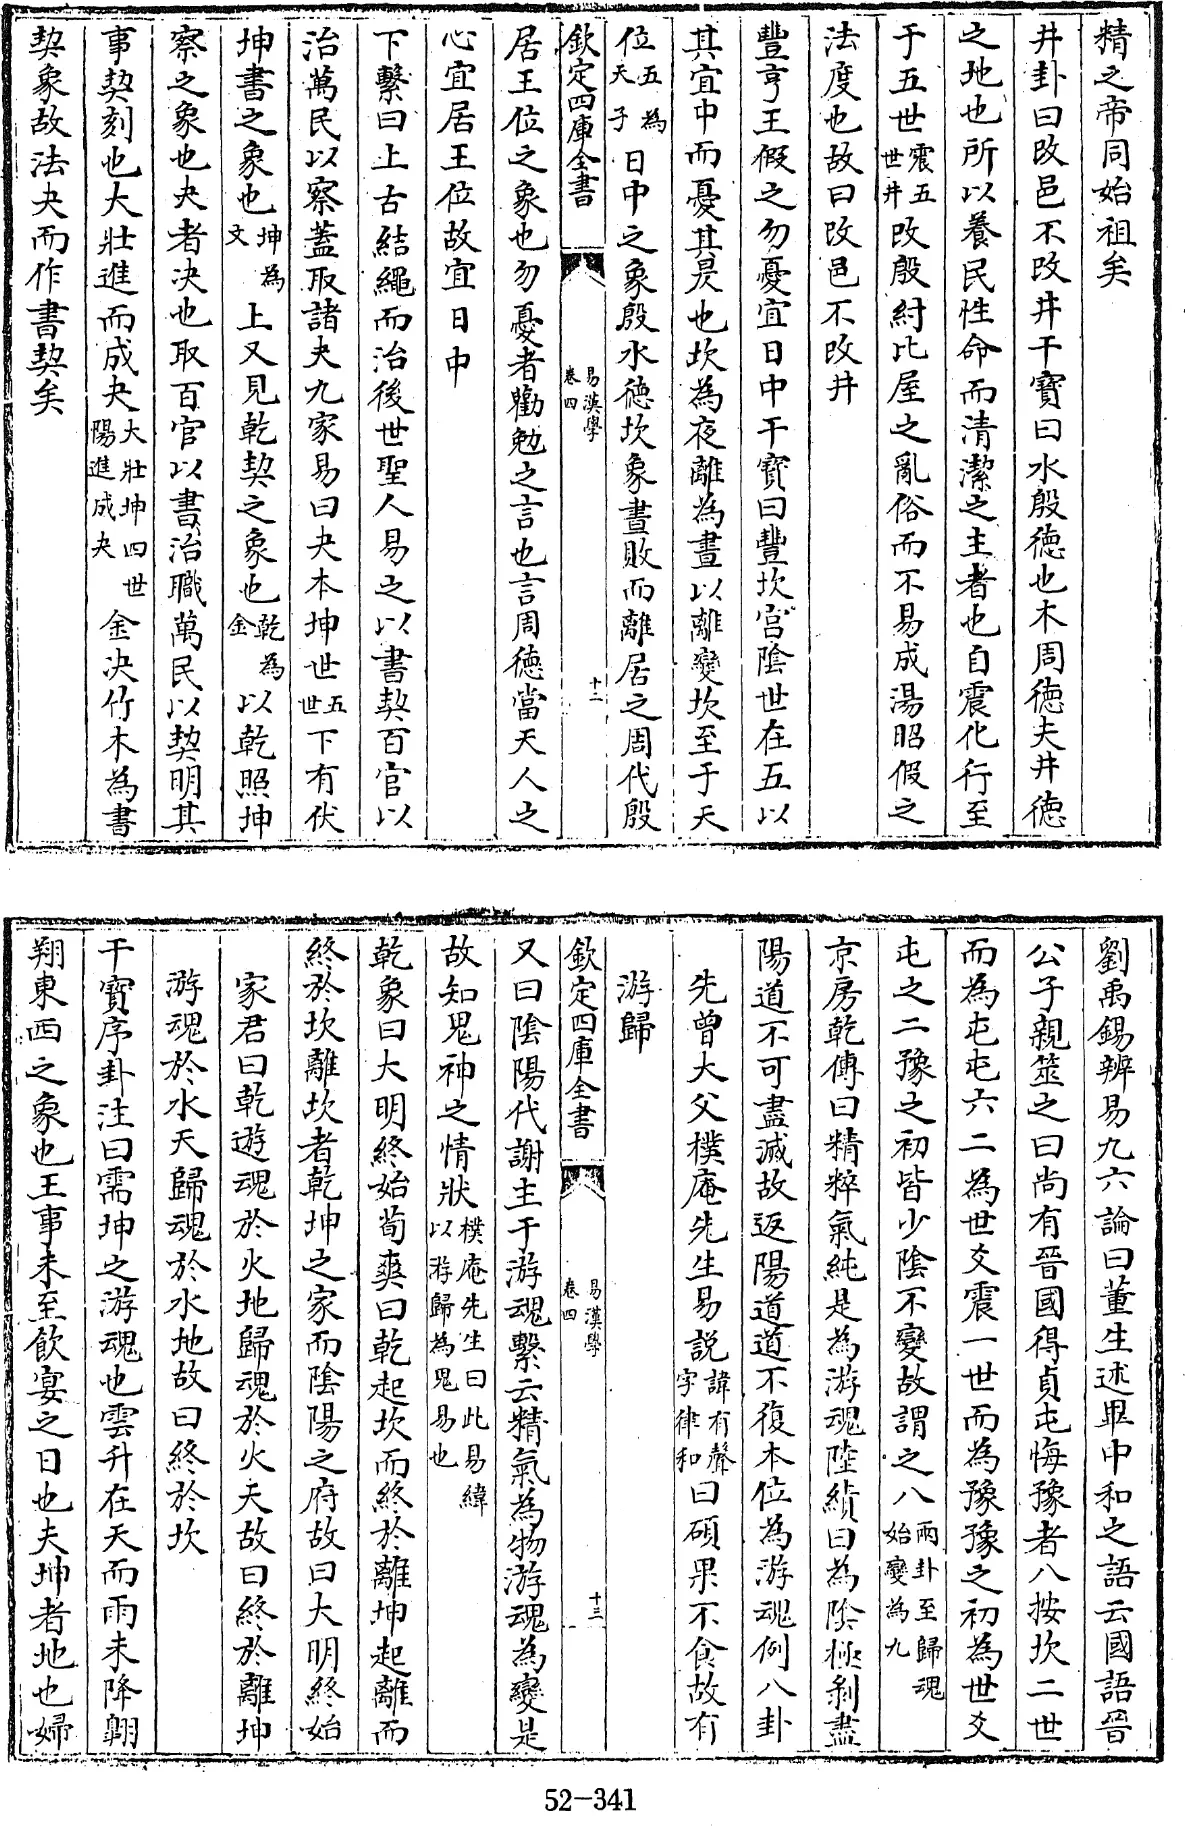 精之帝同始祖矣
井卦曰改邑不改井干寶曰水殷德也木周德夫井德
之地也所以養民性命而清潔之主者也自震化行至
于五世震五世井改殷紂比屋之亂俗而不易成湯昭假之
法度也故曰改邑不改井
豐亨王假之勿憂宜日中干寶曰豐坎宫陰世在五以
其宜中而憂其昃也坎為夜離為晝以離變坎至于天
位五為天子日中之象殷水德坎象晝敗而離居之周代殷
欽定四庫全書
易漢學
卷四
十二
居王位之象也勿憂者勸勉之言也言周德當天人之
心宜居王位故宜日中
下繫曰上古結繩而治後世聖人易之以書契百官以
治萬民以察蓋取諸夬九家易曰夬本坤世五世下有伏
坤書之象也坤為文上又見乾契之象也乾為金以乾照坤
察之象也夬者决也取百官以書治職萬民以契明其
事契刻也大壯進而成夬大壯坤四世陽進成夬金决竹木為書
契象故法夬而作書契矣
劉禹錫辨易九六論曰董生述畢中和之語云國語晉
公子親筮之曰尚有晉國得貞屯悔豫者八按坎二世
而為屯屯六二為世爻震一世而為豫豫之初為世爻
屯之二豫之初皆少陰不變故謂之八兩卦至歸魂始變為九
京房乾傳曰精粹氣純是為游魂陸績曰為陰極剥盡
陽道不可盡滅故返陽道道不復本位為游魂例八卦
先曾大父樸庵先生易說諱有聲字律和曰碩果不食故有
游歸
欽定四庫全書
易漢學
卷四
十三
又曰陰陽代謝主于游魂繫云精氣為物游魂為變是
故知鬼神之情狀樸庵先生曰此易緯以游歸為鬼易也
乾彖曰大明終始荀爽曰乾起坎而終於離坤起離而
終於坎離坎者乾坤之家而陰陽之府故曰大明終始
家君曰乾遊魂於火地歸魂於火天故曰終於離坤
游魂於水天歸魂於水地故曰終於坎
干寶序卦注曰需坤之游魂也雲升在天而雨未降翱
翔東西之象也王事未至飲宴之日也夫坤者地也婦
52-341